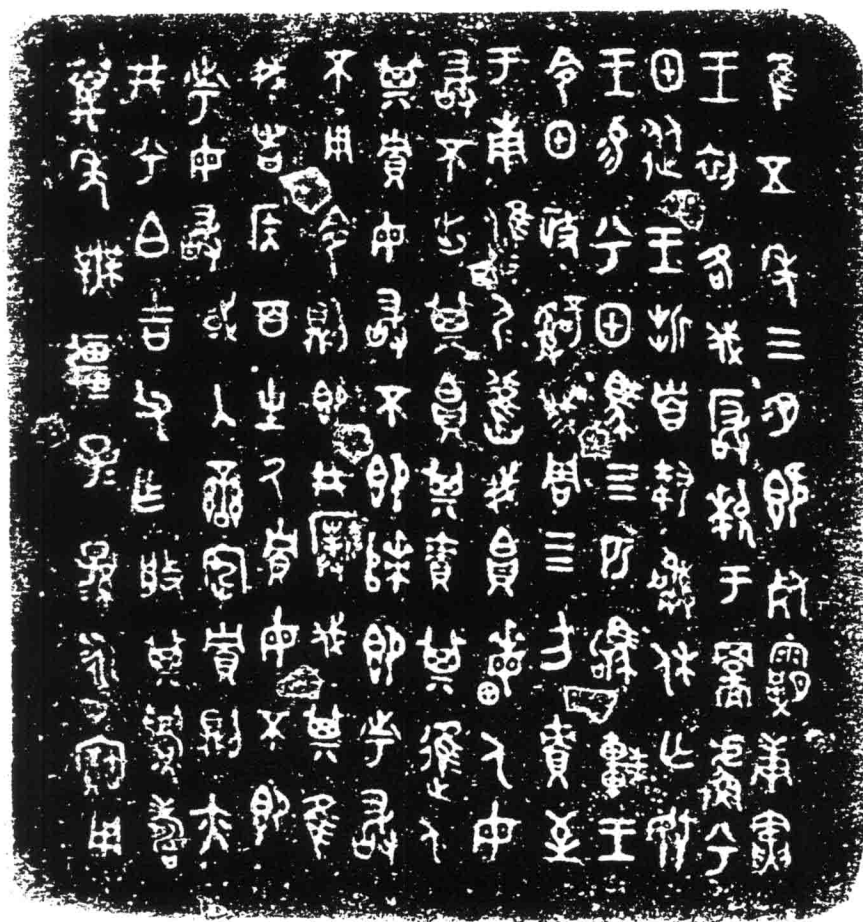 隹五年三月既死霸庚寅
王初各伐玁狁于𠭯𩫖兮
甲從王折首執訊休亡敃
王易兮甲馬四匹駒車王
令甲政𤔲成周四方責至
于南淮尸淮尸舊我帛畮人毋
敢不出其帛其責其進人
其賈毋敢不即次即市敢
不用令則即井撲伐其隹
我者侯百生氒賈毋不即
市毋敢或入蠻宄賈則亦
井兮白吉父乍般其眉壽
萬年無疆子子孫孫永寶用